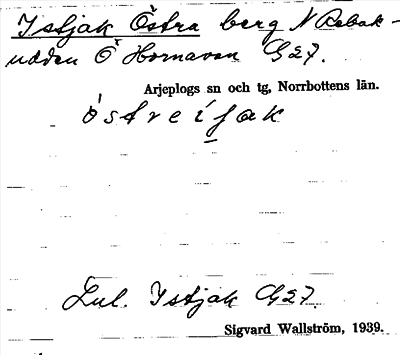 Istjak Östra berg N Rebak-
udden Ö Hornavan G27.
Arjeplogs sn och tg, Norrbottens län.
östreijak
Lul. Istjak G27.
Sigvard Wallström, 1939.